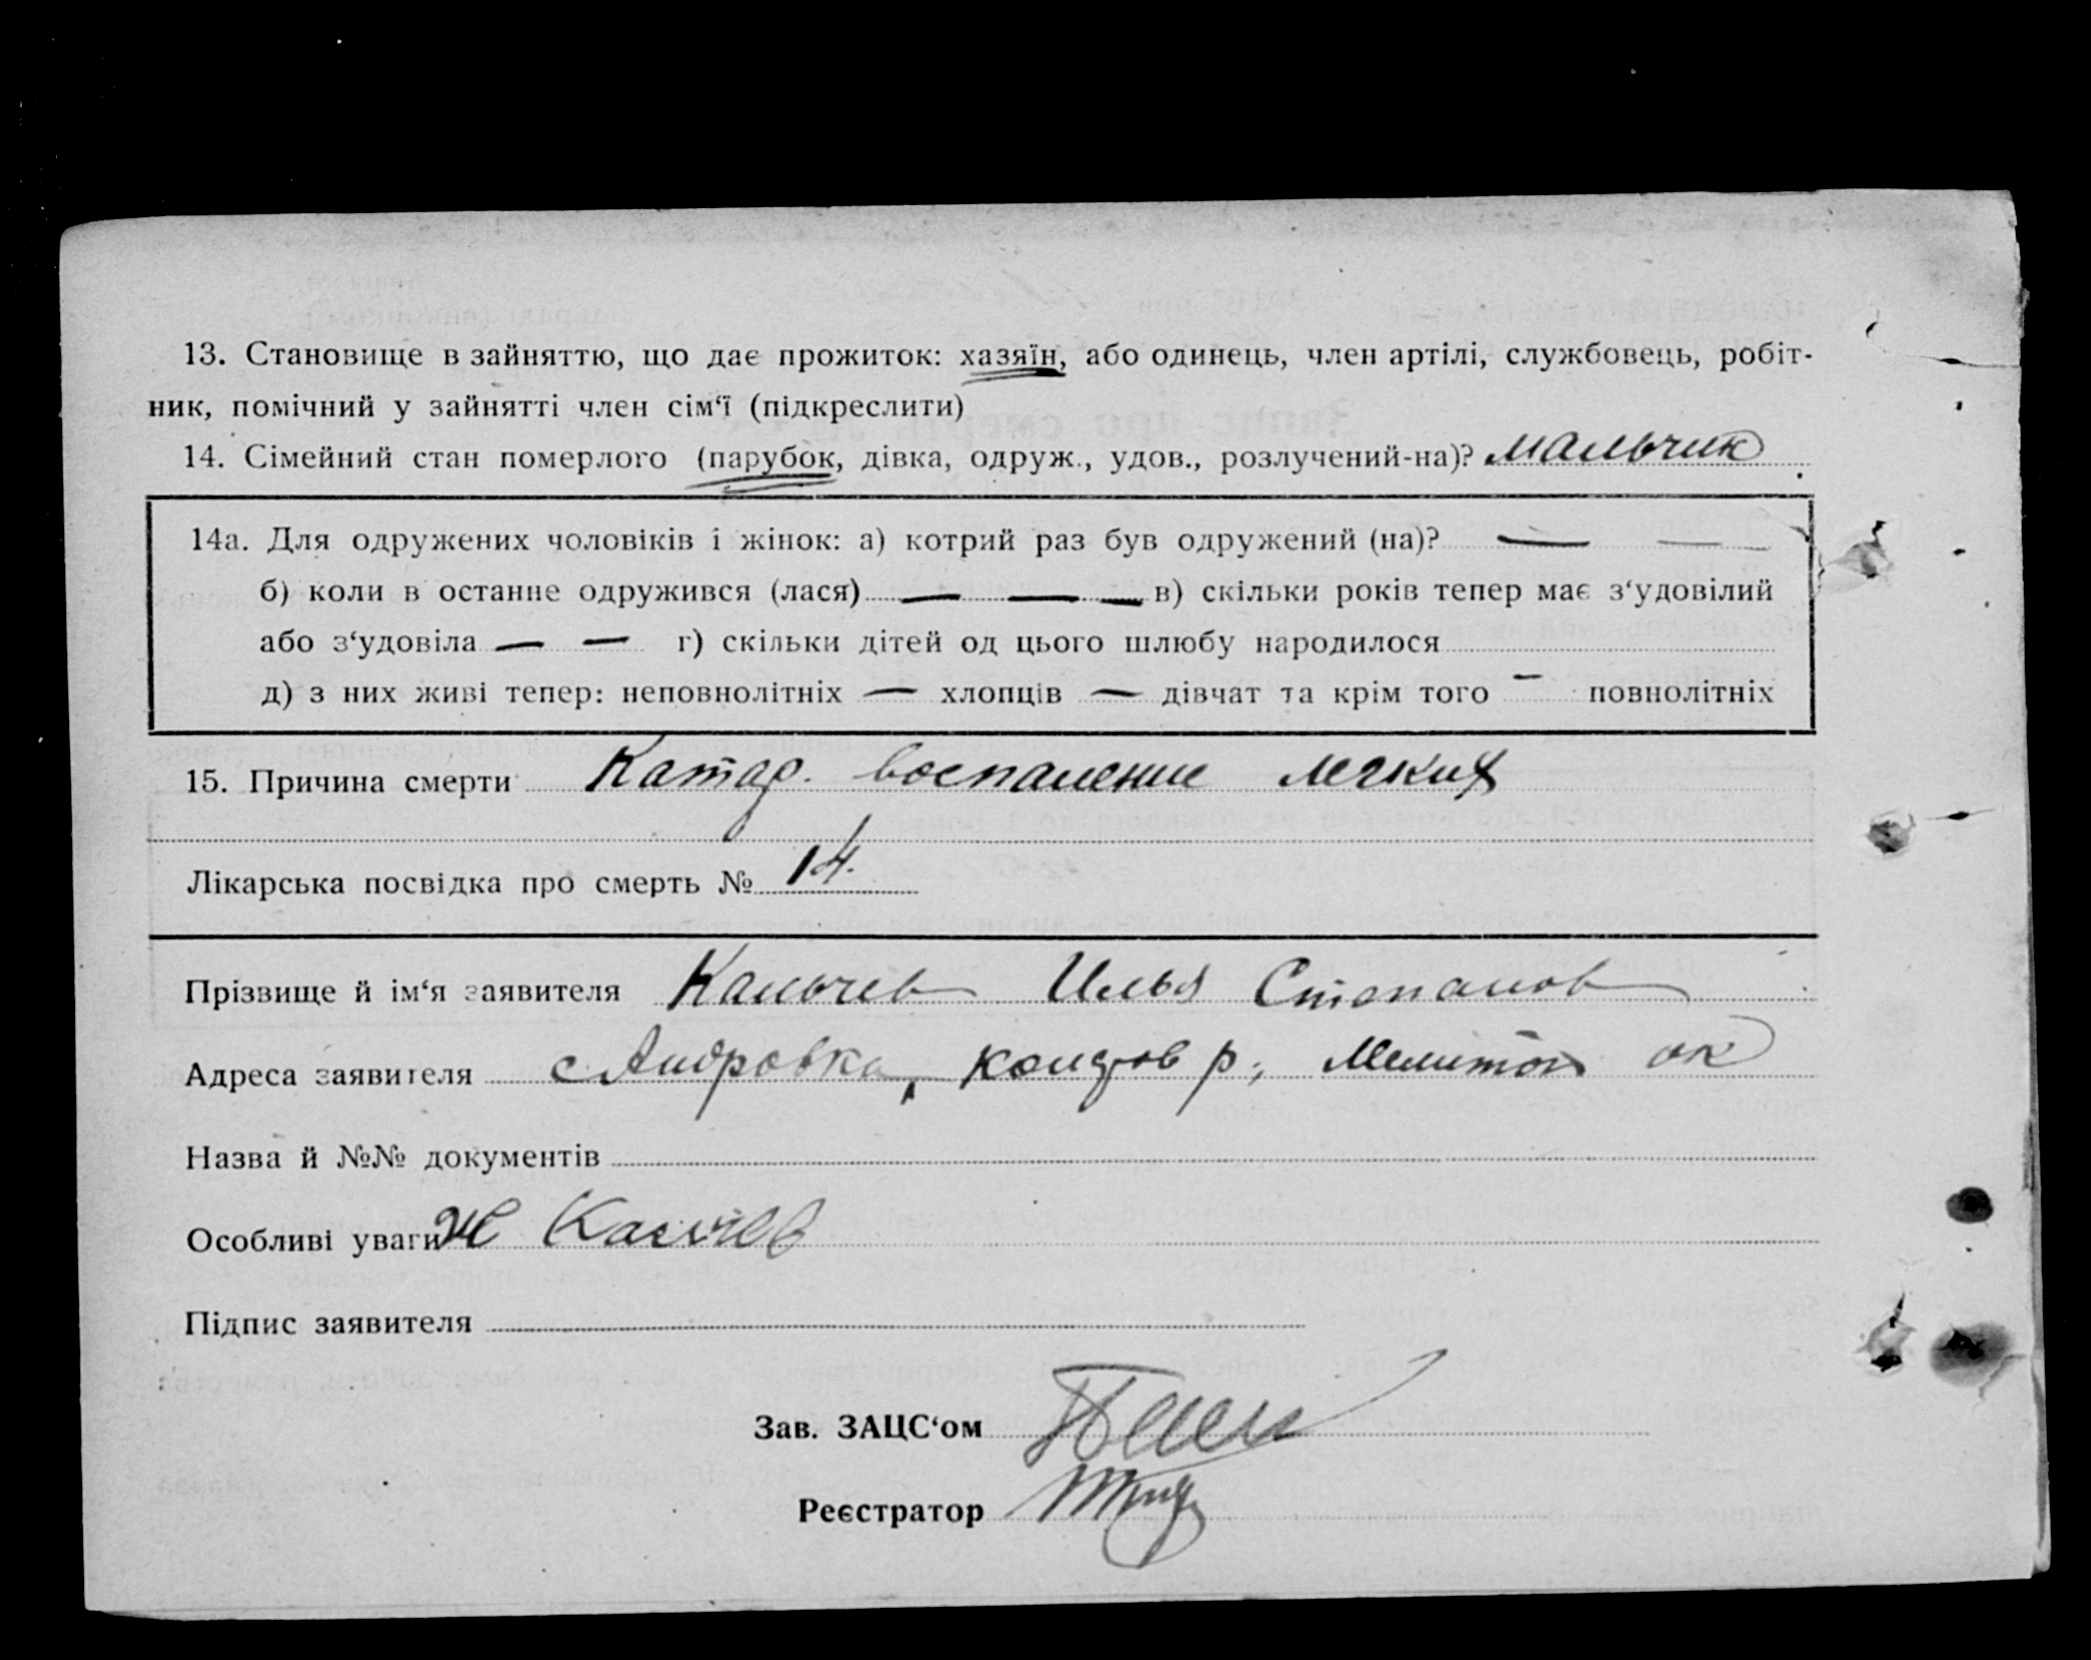 13. Становище в зайняттю, що дає прожиток: хазяїн, або одинець, член артілі, службовець, робіт-
ник, помічний у зайнятті член сім‘ї (підкреслити)
14. Сімейний стан померлого (парубок, дівка, одруж., удов., розлучений-на)? мальчик
14а. Для одружених чоловіків і жінок: а) котрий раз був одружений (на)? — —
б) коли в останнє одружився (лася) — — — в) скільки років тепер має з‘удовілий
або з‘удовіла — — г) скільки дітей од цього шлюбу народилося
д) з них живі тепер: неповнолітніх — хлопців — дівчат та крім того — повнолітніх
15. Причина смерти Катар. воспаление легких
Лікарська посвідка про смерть № 14.
Прізвище й ім‘я заявителя Кальчев Илья Степанов
Адреса заявителя с Андровка, р; Мелитоп ок
Назва й №№ документів
Особливі уваги Калчев
Підпис заявителя
Зав. ЗАЦС‘ом
Реєстратор